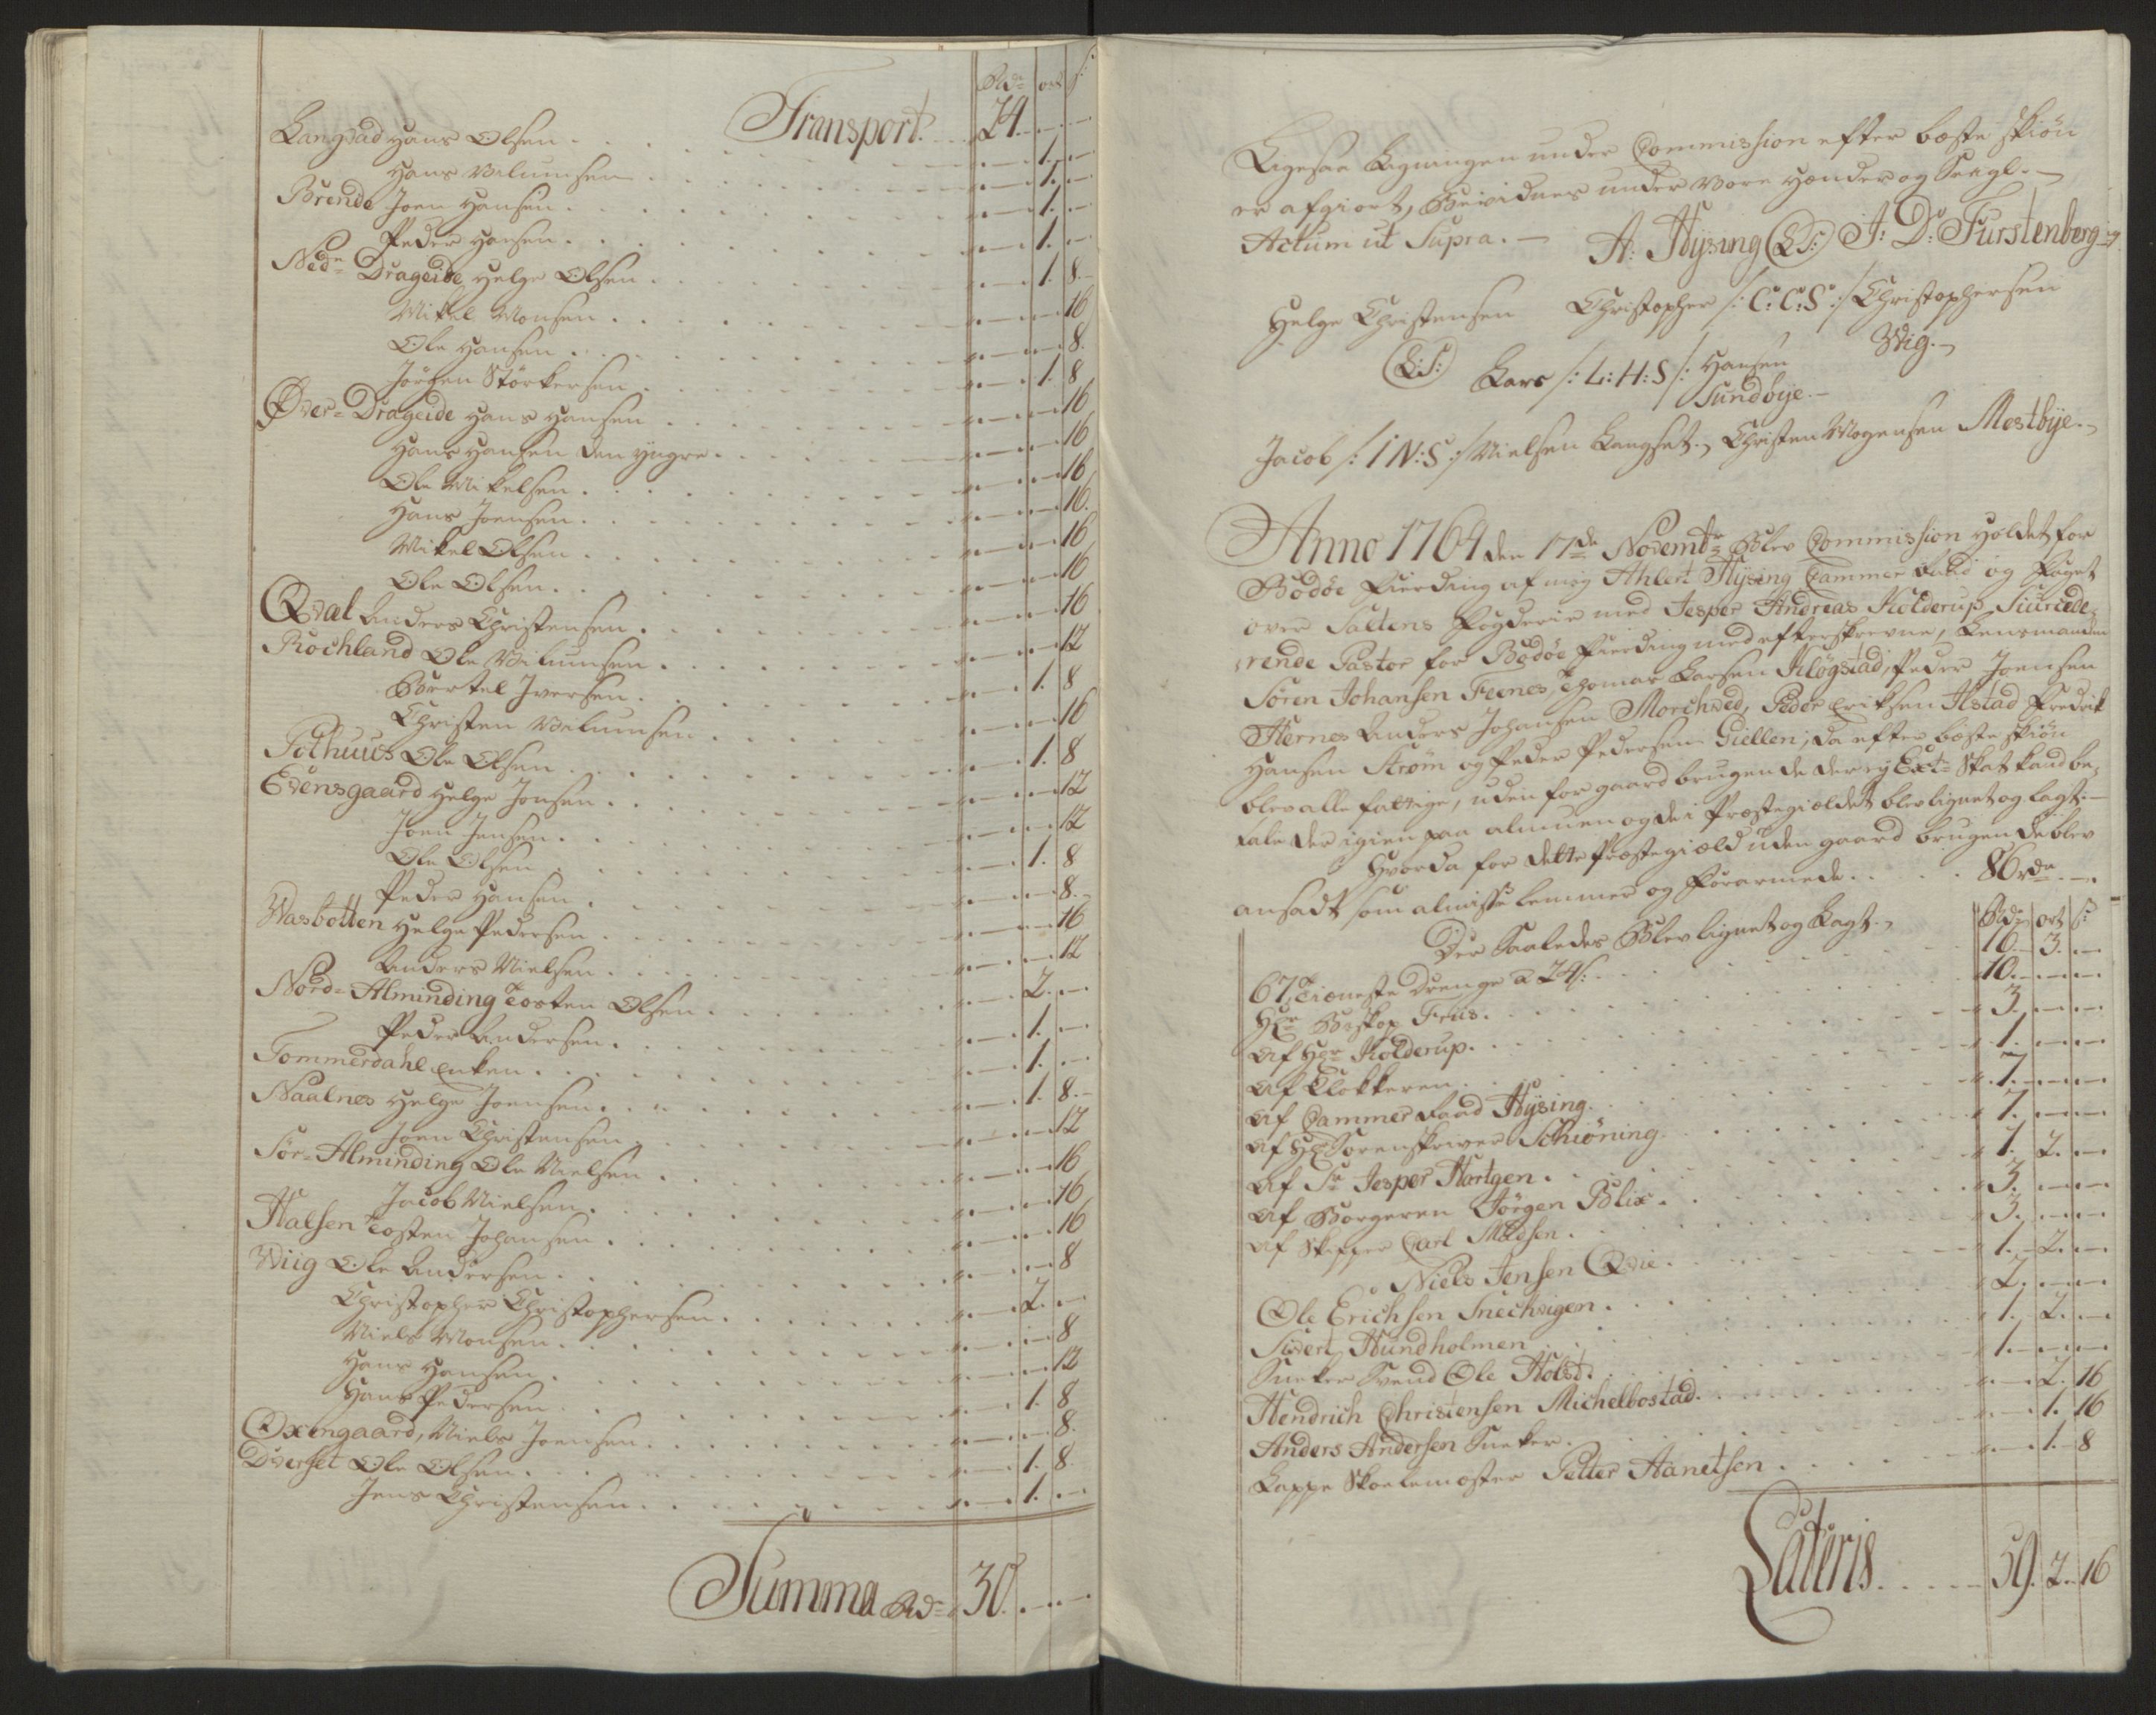 Rdr ort s:
Transport. 24. — —
Langsad Hans Olsen . . . 1. —
Hans Villumsen . . . 1. —
Brende Joen Hansen . . . 1. —
Peder Hansen . . . 1. —
Nedr Drageide Helge Olsen . . . 1. 8.
Mikel Monsen . . . 16
Ole Hansen . . . 8.
Jörgen Störkersen . . . 1. 8
Øver-Drageide Hans Hansen . . . 16
Hans Hansen den yngre . . . 16
Ole Mikelsen . . . 16
Hans Joensen . . . 16.
Mikel Olsen . . . 16
Ole Olsen . . . 16
Qval Anders Christensen . . . 16
Rochland Ole Villumsen . . . 12
Bertel Iversen . . . 1. 8
Christen Villumsen . . . 16
Pothuus Ole Olsen . . . 1. 8
Evensgaard Helge Jonsen . . . 12
Joen Jensen . . . 12
Ole Olsen . . . 1. 8
Peder Hansen . . . 8.
Wasbotten Helge Pedersen . . . 16
Anders Nielsen . . . 12
Nord-Alminding Tosten Olsen . . . 2. —
Peder Andersen . . . 1. —
Tommerdahl Enken . . . 1. —
Naalnes Helge Joensen . . . 1. 8.
Joen Christensen . . . 12
Sör-Alminding Ole Nielsen . . . 16
Jacob Nielsen . . . 16
Halsen Tosten Johansen . . . 16
Wiig Ole Andersen . . . 8
Christopher Christophersen . . . 2. —
Niels Monsen . . . 8
Hans Hansen . . . 12
Hans Pedersen . . . 1. 8
Oxengaard, Niels Joensen . . . 8.
Dverset Ole Olsen . . . 1. 8.
Jens Christensen . . . 1. —
Summa Rdr 30. — —
Ligesaa Ligningen under Commission efter bæste skiön
er afgiort, Bevidnes under vore Hænder og Seigl. —
Actum ut Supra. — A: Hysing (L.S:) J: D: Fürstenberg
Helge Christensen Christopher /: C: C: S: / Christophersen
Wig. —
(L:S:) Lars /: L: H: S /: Hansen
Sundbye. —
Jacob /: I N: S: / Nielsen Langset. — Christen Mogensen Mestbye. —
Anno 1764 den 17de Novembr Blev Commission holdet for
Bodöe Fierding af mig Ahlert Hysing Cammer Raad og Foget
over Saltens Fogderie med Jesper Andreas Kolderup, Siurede-
rende Pastor for Bodöe Fierding med efterskrevne, Lensmanden
Sören Johansen Feenes, Thomas Larsen Klögstad, Peder Joensen
Hernes Anders Johansen Morchved, Peder Eriksen Alstad Fredrik
Hansen Strøm og Peder Pedersen Giellen; da efter bæste skiön
blev alle fattige, uden for gaard brugende der ey Extr Skat kand be-
tale der igien paa almuen og de i Præstegieldet blev lignet og lagt. —
Hvorda for dette Præstegield uden gaard brugende blev
ansadt som almisse Lemmer og Forarmede . . . 86 rdr —
Der Saaledes Blev lignet og Lagt. —
Rdr ort s:
67 Tieneste Drenge a 24 s: . . . 16. 3. —
Hr Biskop Friis . . . 10. — —
Af Hr Kolderup . . . 3. — —
Af Klokkeren . . . 1. — —
Af Cammer Raad Hysing . . . 7. — —
Af Hr Sorenskriver Schiöning . . . 7. — —
Af Sr Jesper Hartgen . . . 1. 2. —
Af Borgeren Jörgen Blix . . . 3. — —
Af Skipper Carl Madsen . . . 3. — —
Niels Jensen Qvie . . . 1. 2. —
Ole Erichsen Snechvigen . . . 2. — —
Sivert Hundholmen . . . 1. 2. —
Sneker Svend Ole Holst . . . 1. — —
Hendrich Christensen Michelbostad . . . 2. 16
Anders Andersen Sneker . . . 1. 16
Lappe Skoelemester Petter Aanetsen . . . 1. 8
Lateris . . . 59. 2. 16